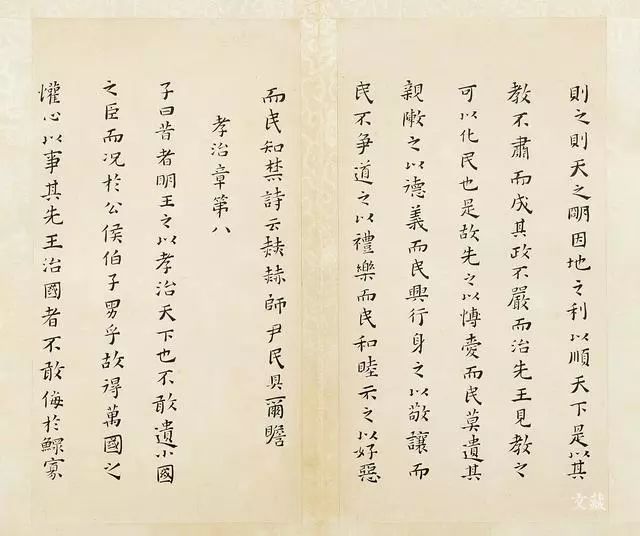 則之則天之明因地之利以順天下是以其
教不肅而成其政不嚴而治先王見教之
可以化民也是故先之以博愛而民莫遺其
親陳之以德義而民興行身之以敬讓而
民不爭道之以禮樂而民和睦示之以好惡
而民知禁詩云赫赫師尹民具爾瞻
孝治章第八
子曰昔者明王之以孝治天下也不敢遺小國
之臣而況於公侯伯子男乎故得萬國之
懽心以事其先王治國者不敢侮於鰥寡